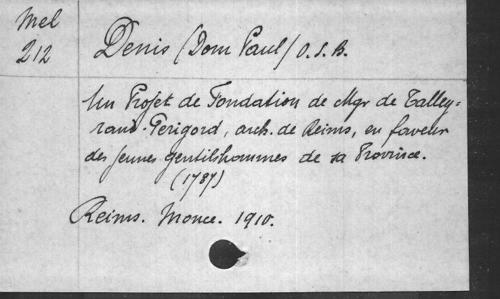 Mel
212
Denis (Dom Paul) O.S.B.
Un Projet de Fondation de Mgr de Talley-
rand-Perigord, arch. de Reims, en faveur
des jeunes gentilshommes de sa Province.
(1787)
Reims. Monce. 1910.